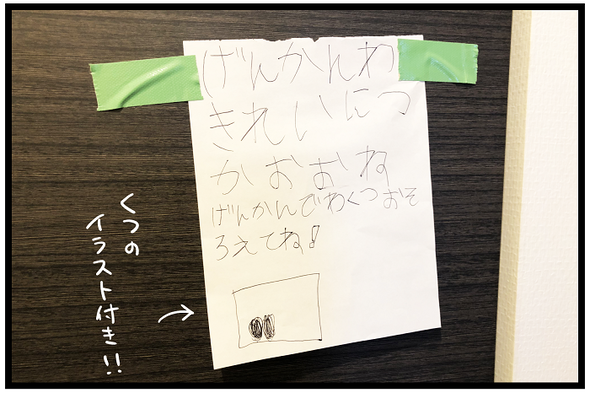 げんかんわ
きれいにつ
かおおね
げんかんでわくつおそ
ろえてね!
くつの
イラスト付き!!